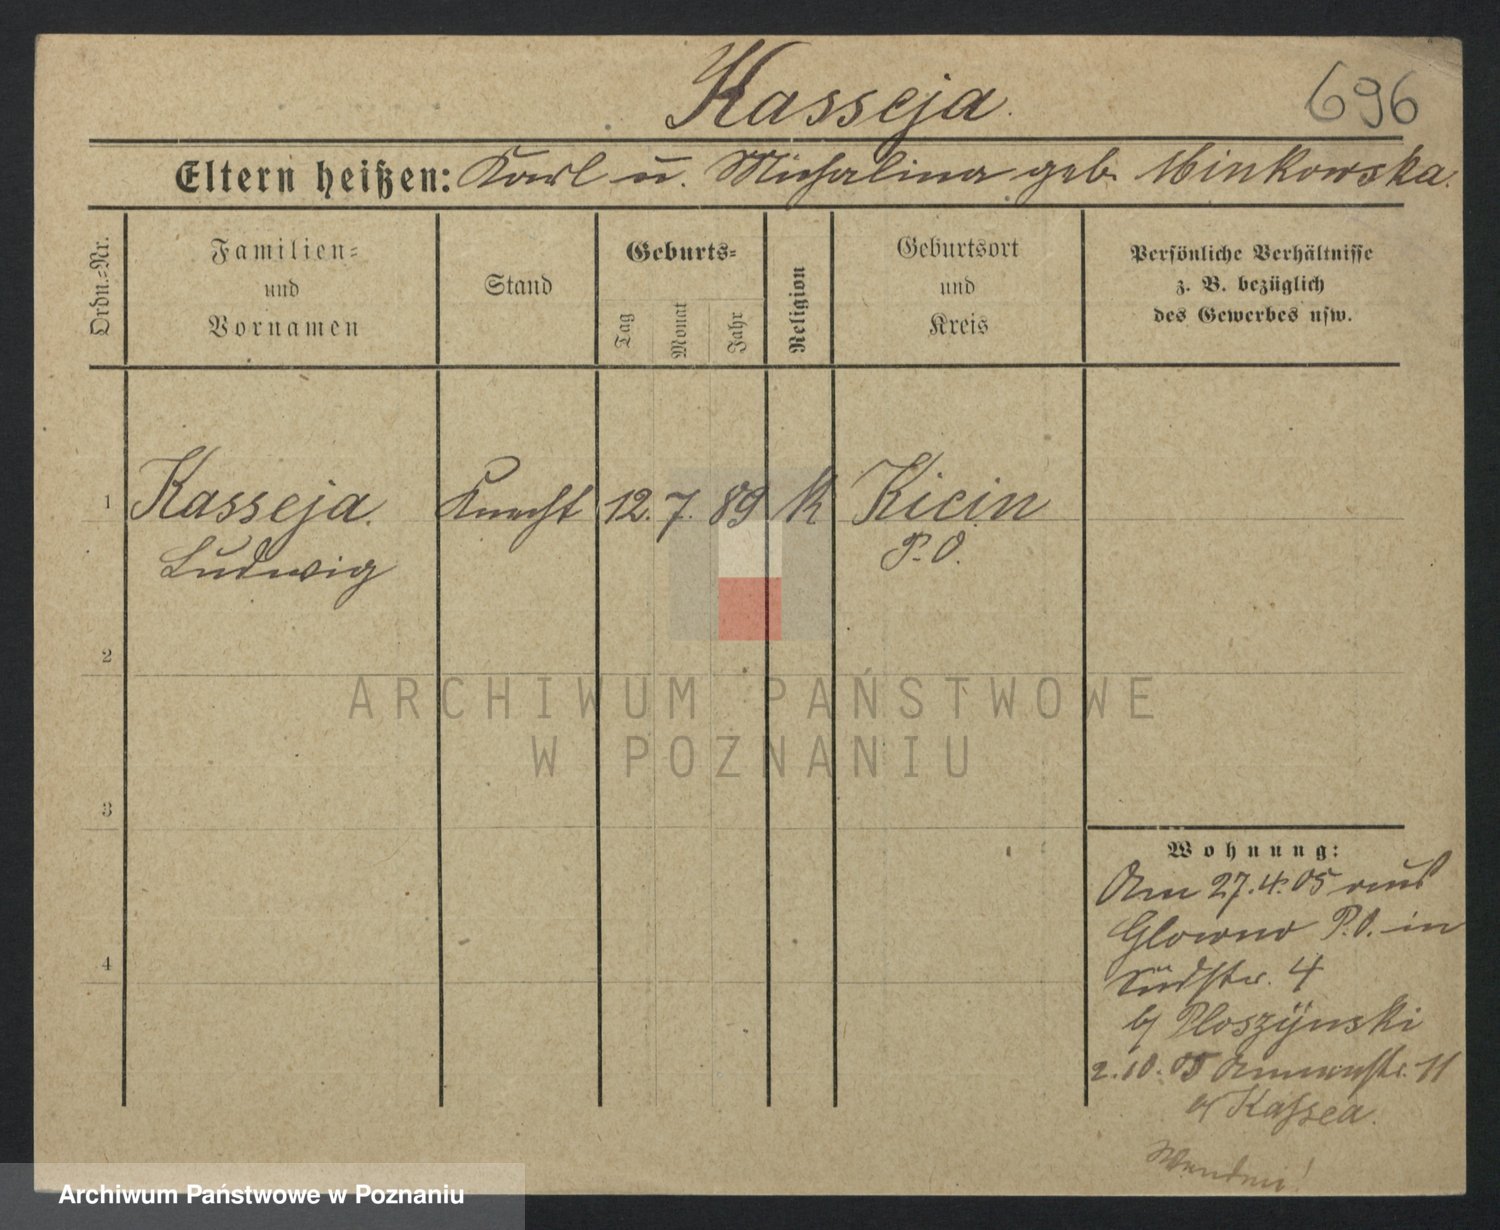 Kasseja.
696
Eltern heißen: Karl u. Michalina geb. Minkowska.
Ordn.-Nr.
Familien-
und
Vornamen
Stand
Geburts-
Tag
Monat
Jahr
Religion
Geburtsort
und
Kreis
Persönliche Verhältnisse
z. B. bezüglich
des Gewerbes usw.
1 Kasseja. Knecht 12. 7. 89 K Kicin
Ludwig P. O.
2
3
4
ARCHIWUM PAŃSTWOWE
W POZNANIU
Wohnung:
Am 27.4.05 aus
Glowno P.O. in
Südstr. 4
b/ Ploszÿnski
2.10.05 11
b/ Kassea.
Wenden!
Archiwum Państwowe w Poznaniu